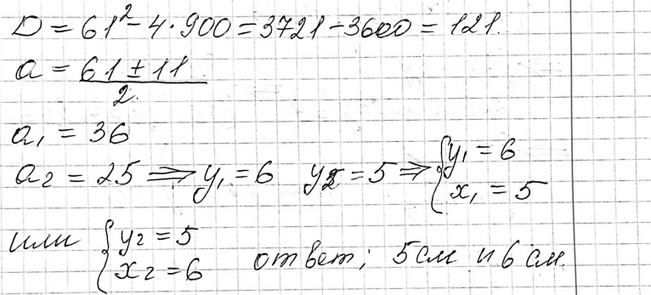 D = 61² - 4 · 900 = 3721 - 3600 = 121.
a = (61 ± 11) / 2.
a₁ = 36
a₂ = 25 ⇒ y₁ = 6 y₂ = 5 ⇒ { y₁ = 6
x₁ = 5
или { y₂ = 5
x₂ = 6 ответ; 5 см и 6 см.